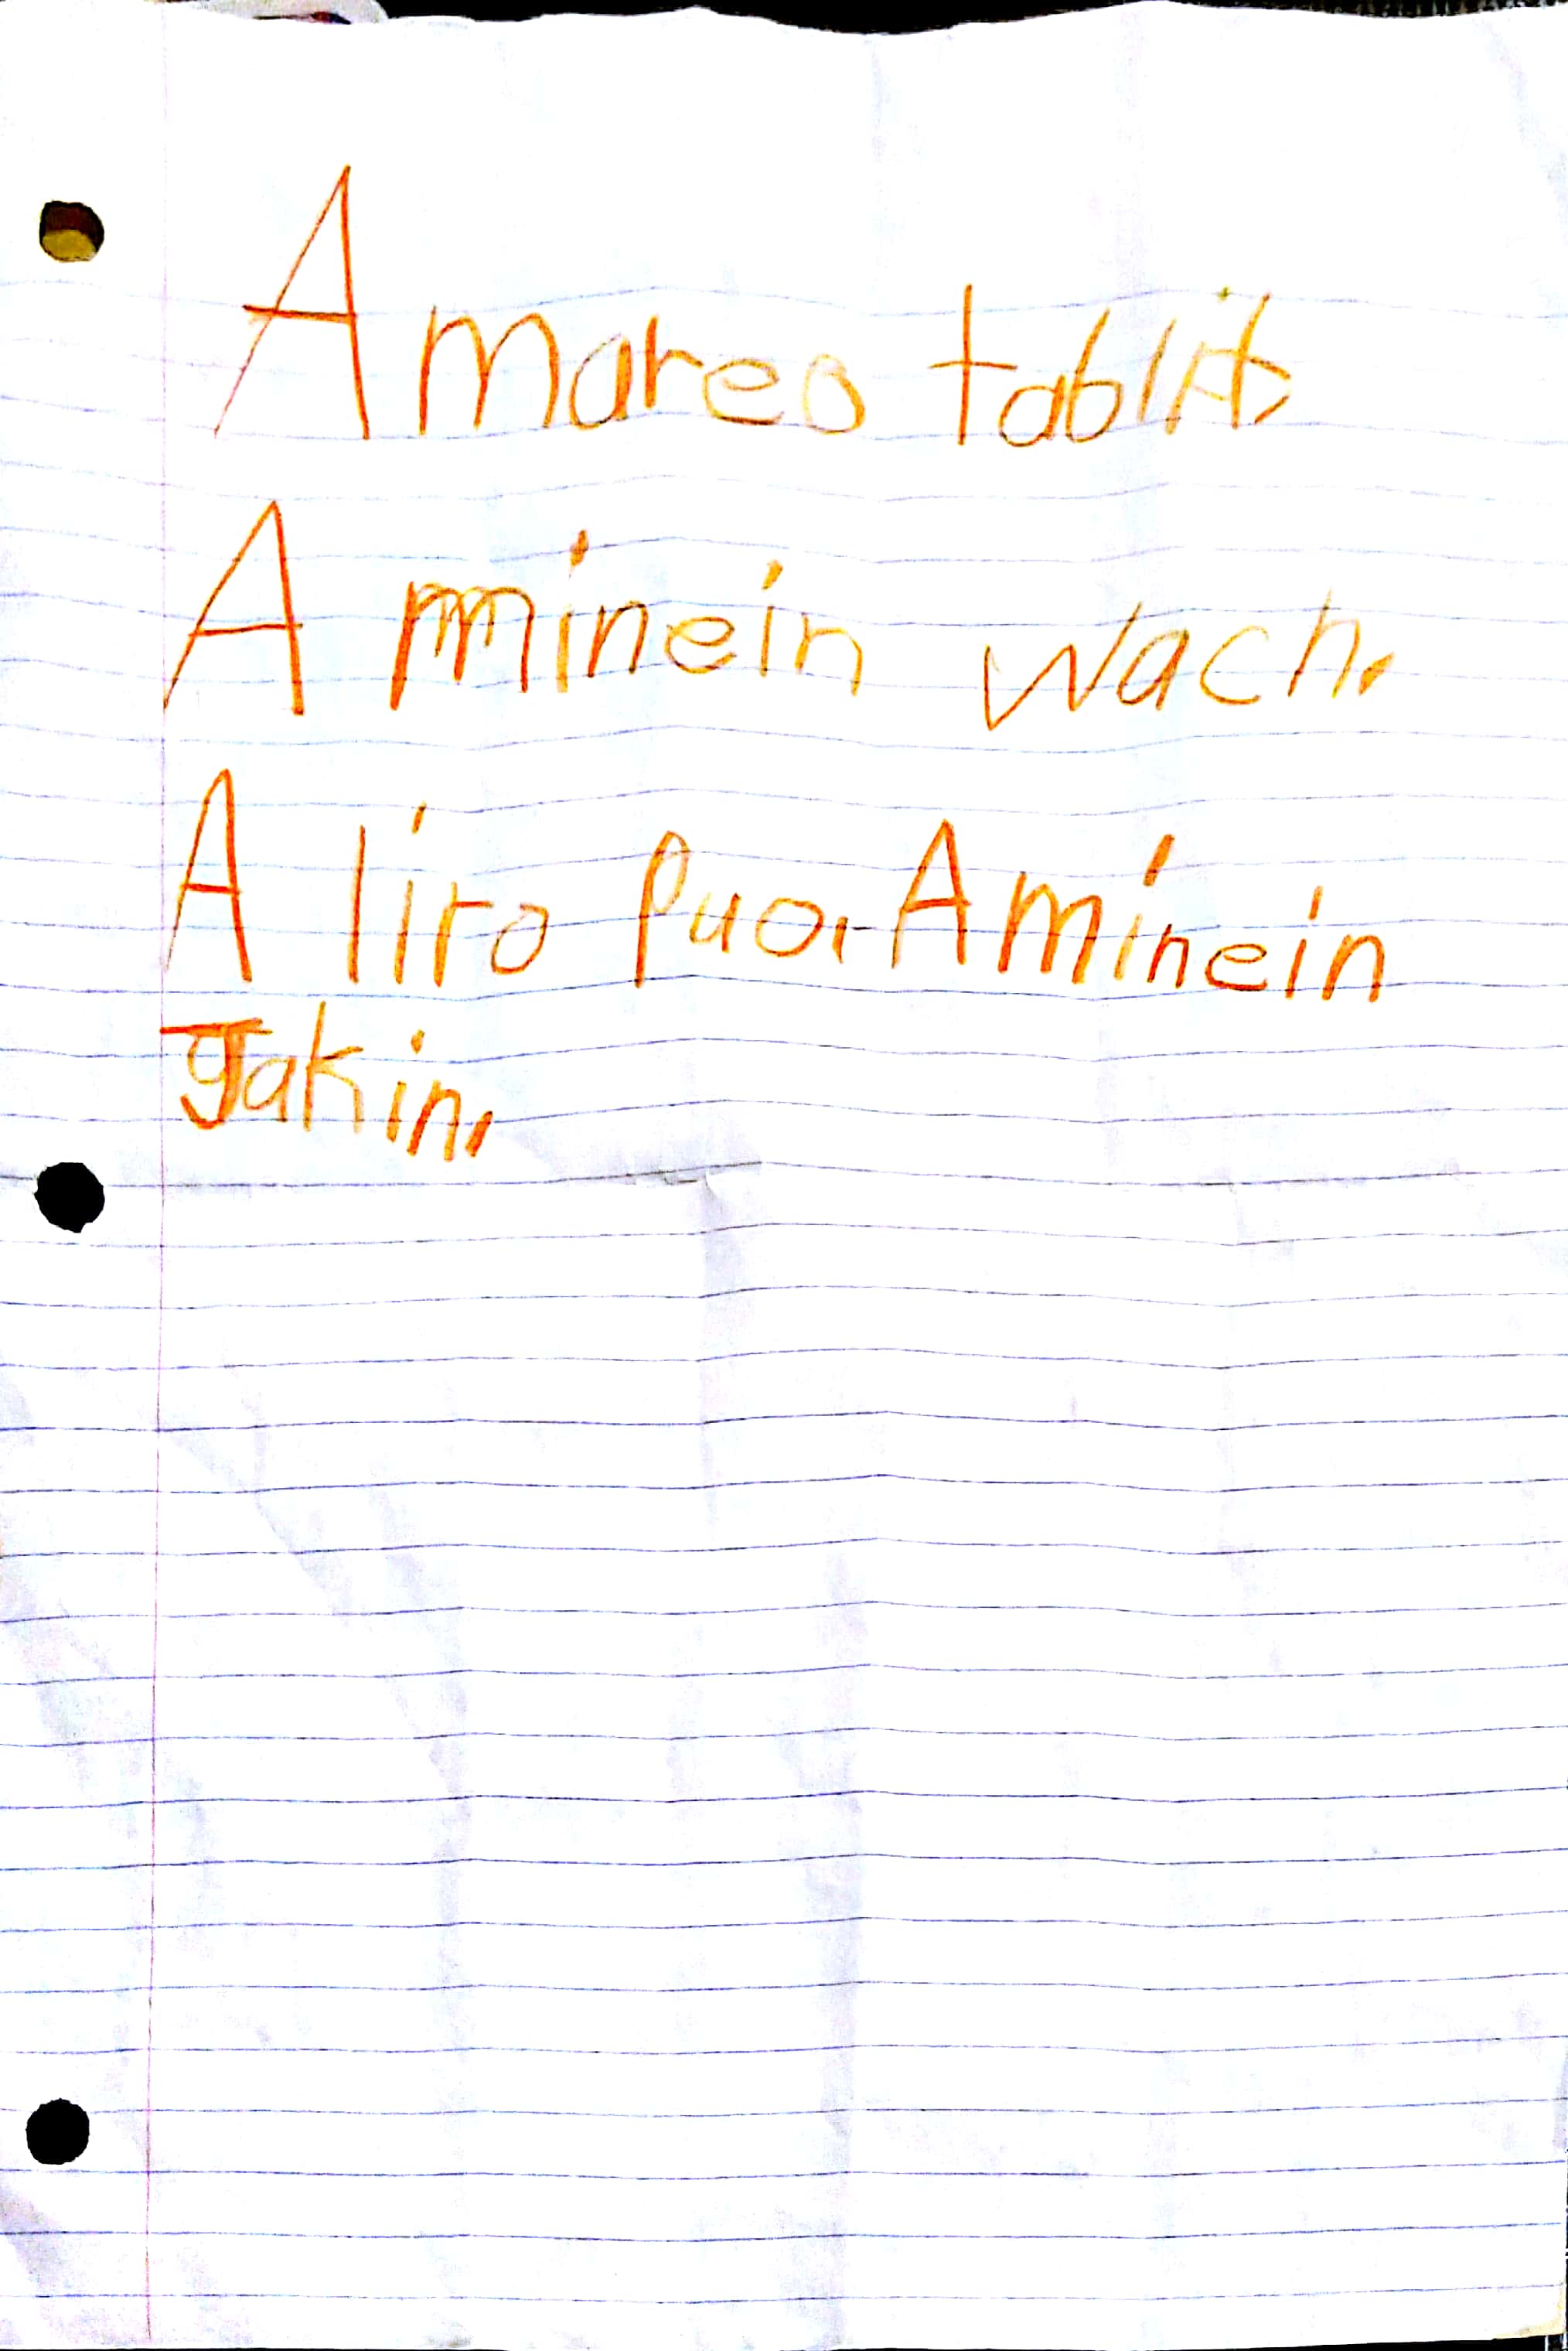 A mareo tablit,
A minein wach.
A liro puo. A minein
Jakin.